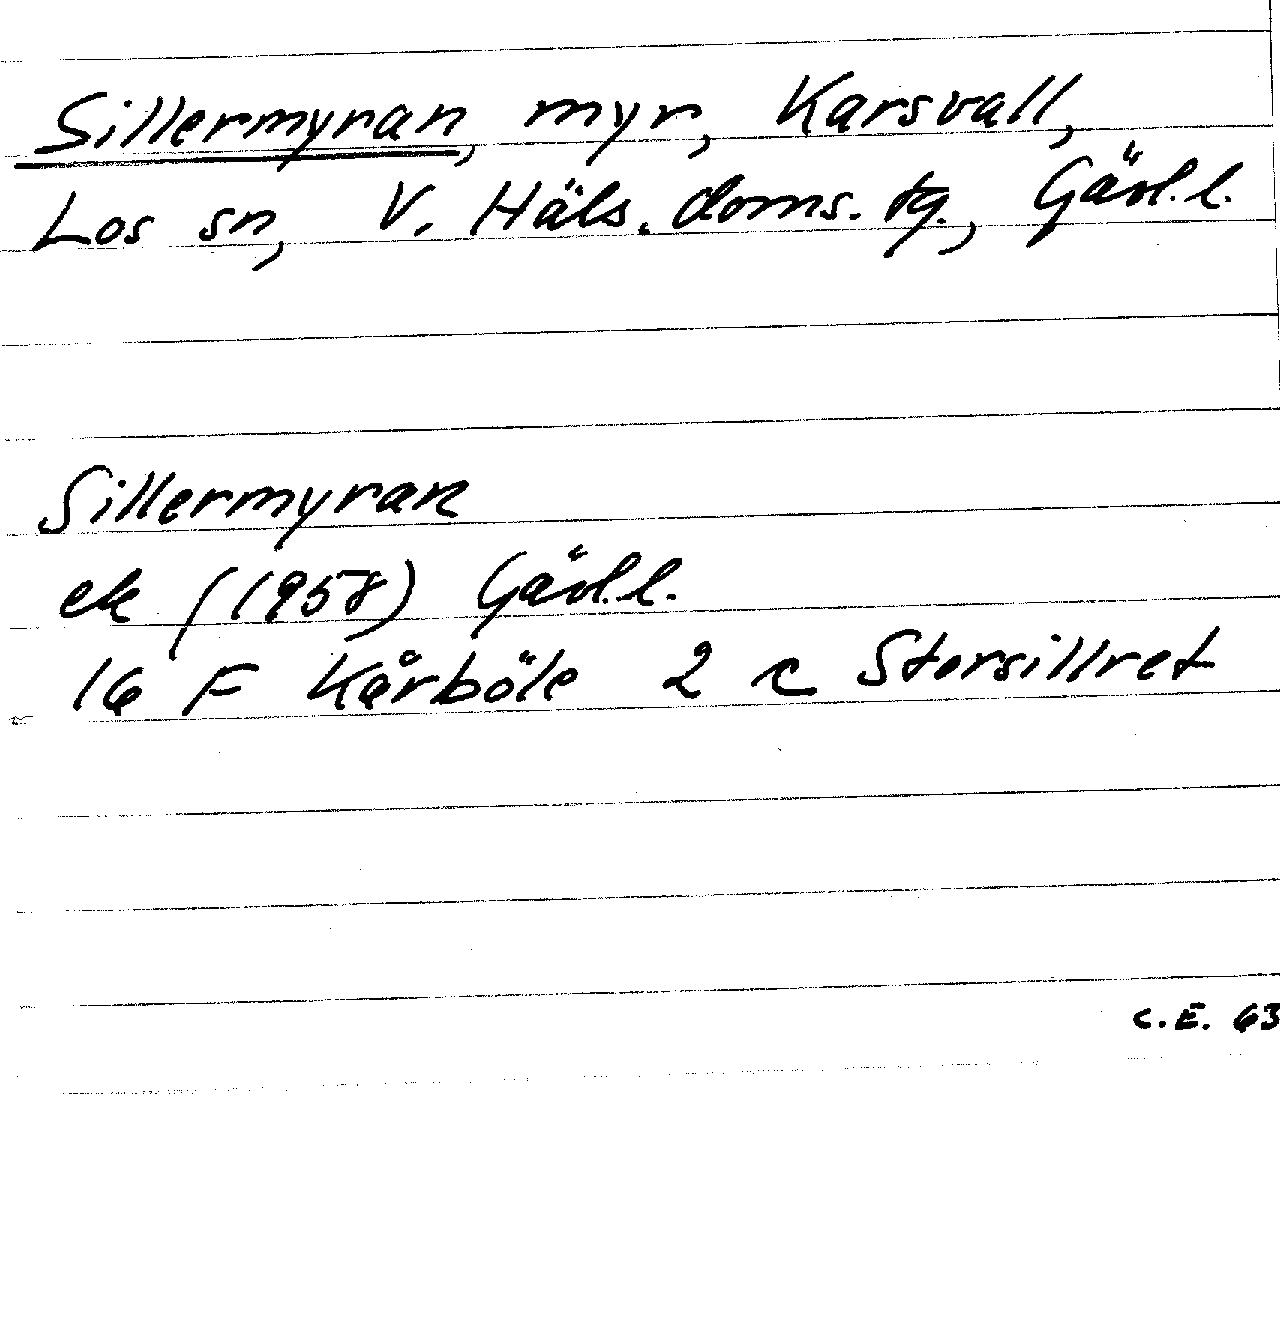 Sillermyran, myr, Karsvall,
Los sn, V. Häls. doms. tg., Gävl.l.
Sillermyran
ek (1958) Gävl.l.
16 F Kårböle 2 c Storsillret
C.E. 63